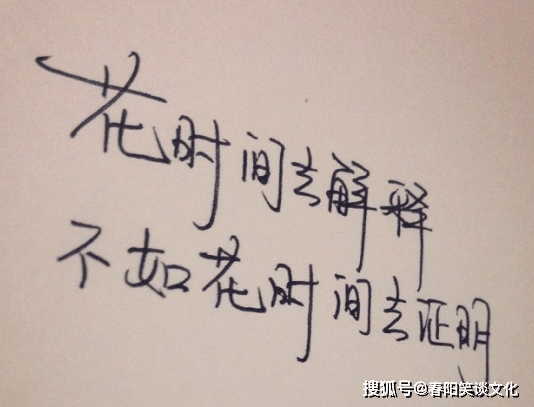 花时间去解释
不如花时间去证明
搜狐号@春阳笑谈文化